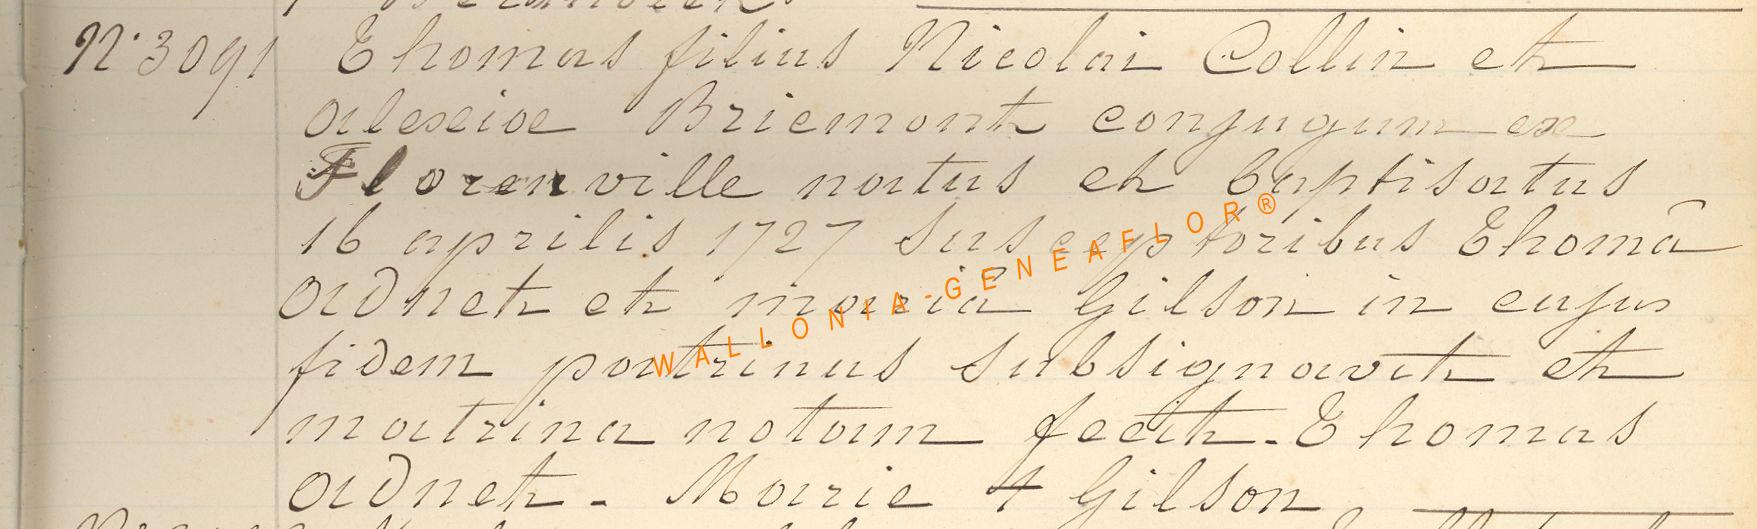 N° 3091 Thomas filius Nicolai Collin et
alexiae Briemont conjugum ex
Florenville natus et baptisatus
16 aprilis 1727 Susceptoribus Thomā
adnet et maria Gilson in cujus
fidem patrinus subsignavit et
matrina notam fecit. Thomas
adnet. Marie + Gilson
WALLONIA-GENEAFLOR®